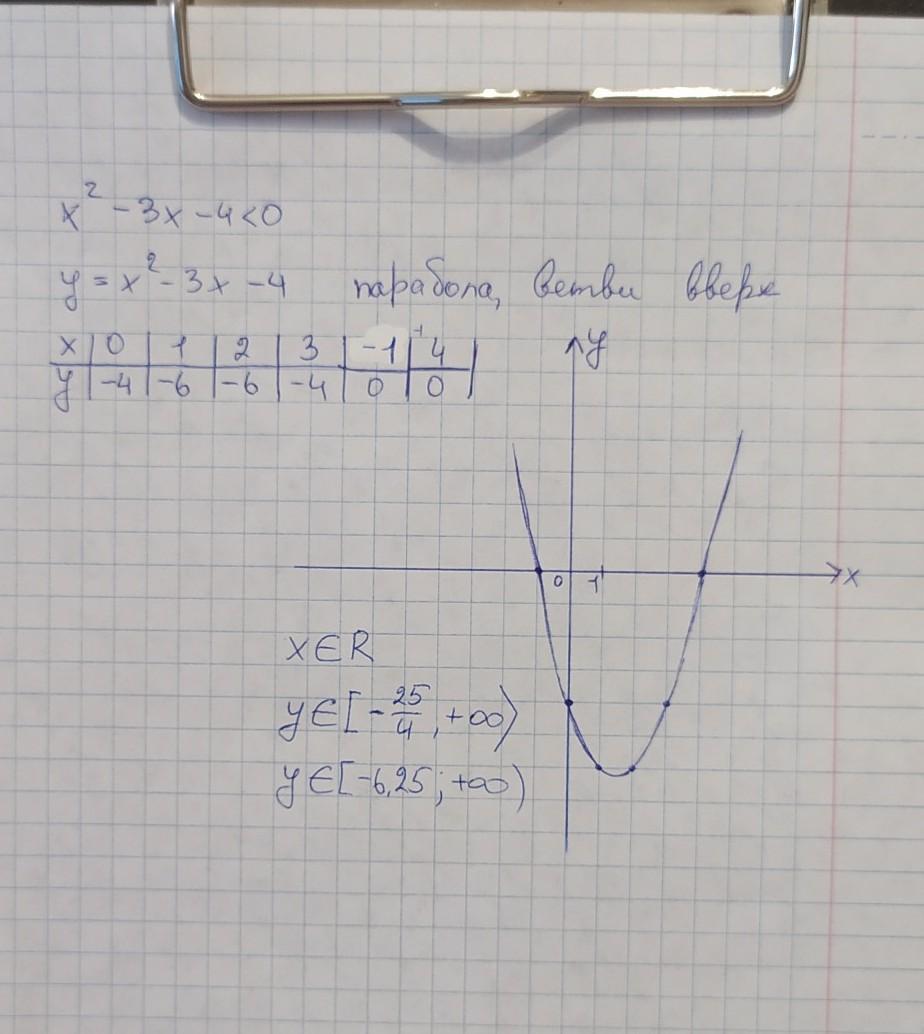 x² - 3x - 4 < 0
y = x² - 3x - 4 парабола, ветви вверх
x | 0 | 1 | 2 | 3 | -1 | 4
y | -4 | -6 | -6 | -4 | 0 | 0
y
0 1 x
x ∈ R
y ∈ [-25/4, +∞)
y ∈ [-6,25; +∞)